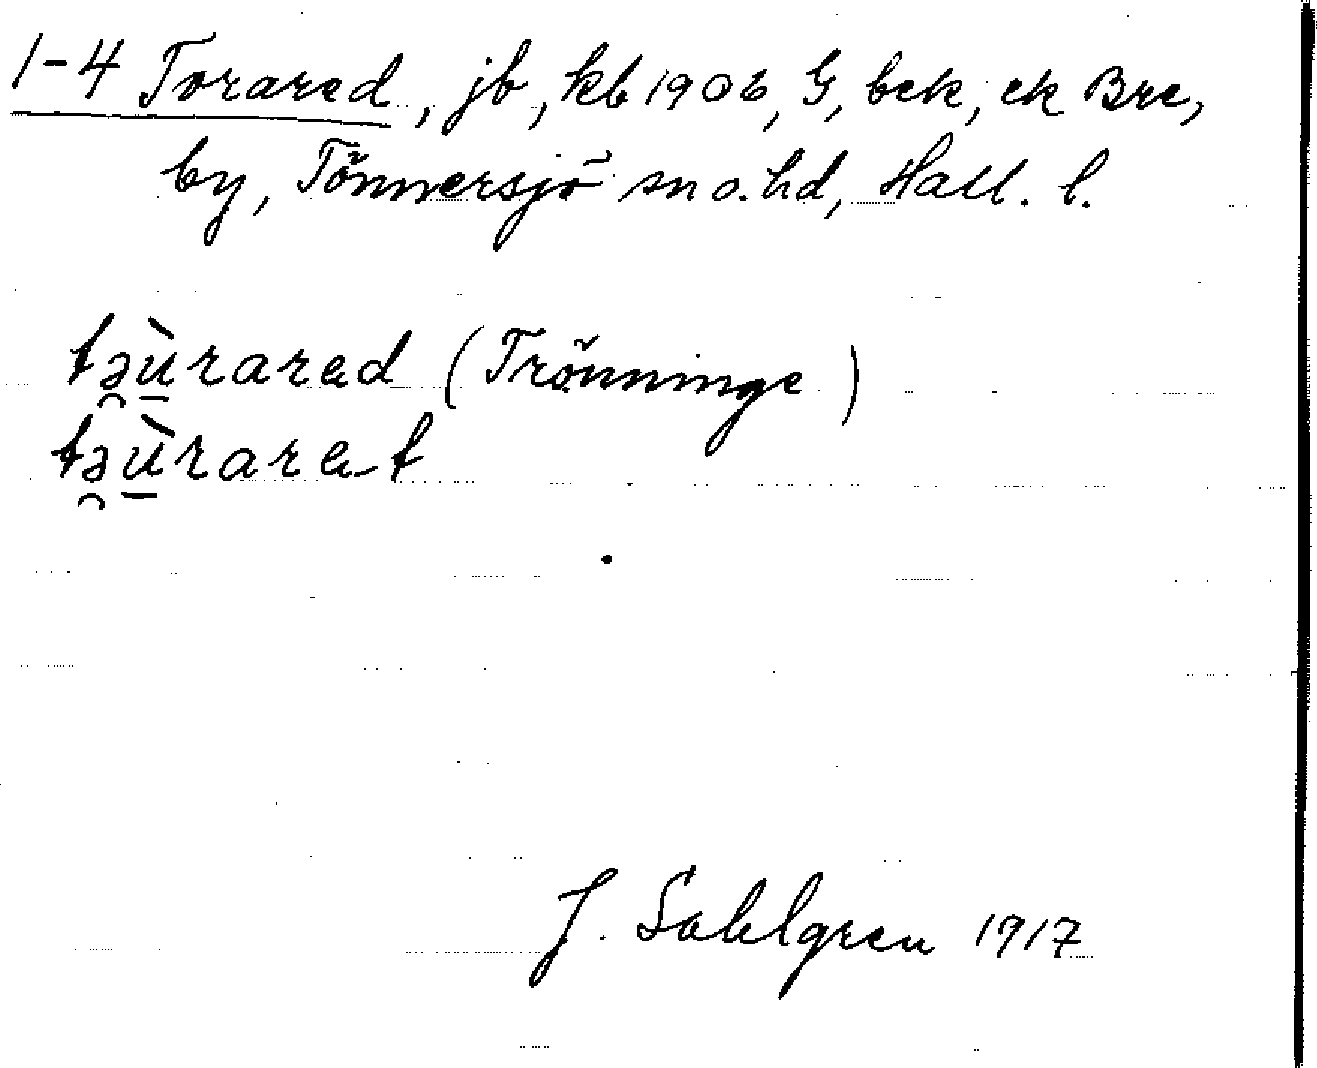 1-4 Torared, jb, kb 1906, G, bek, ek Bre,
by, Tönnersjö sn o. hd, Hall. l.
tə̯ù̱rarad (Trönninge)
tə̯ù̱rarat
J. Sahlgren 1917